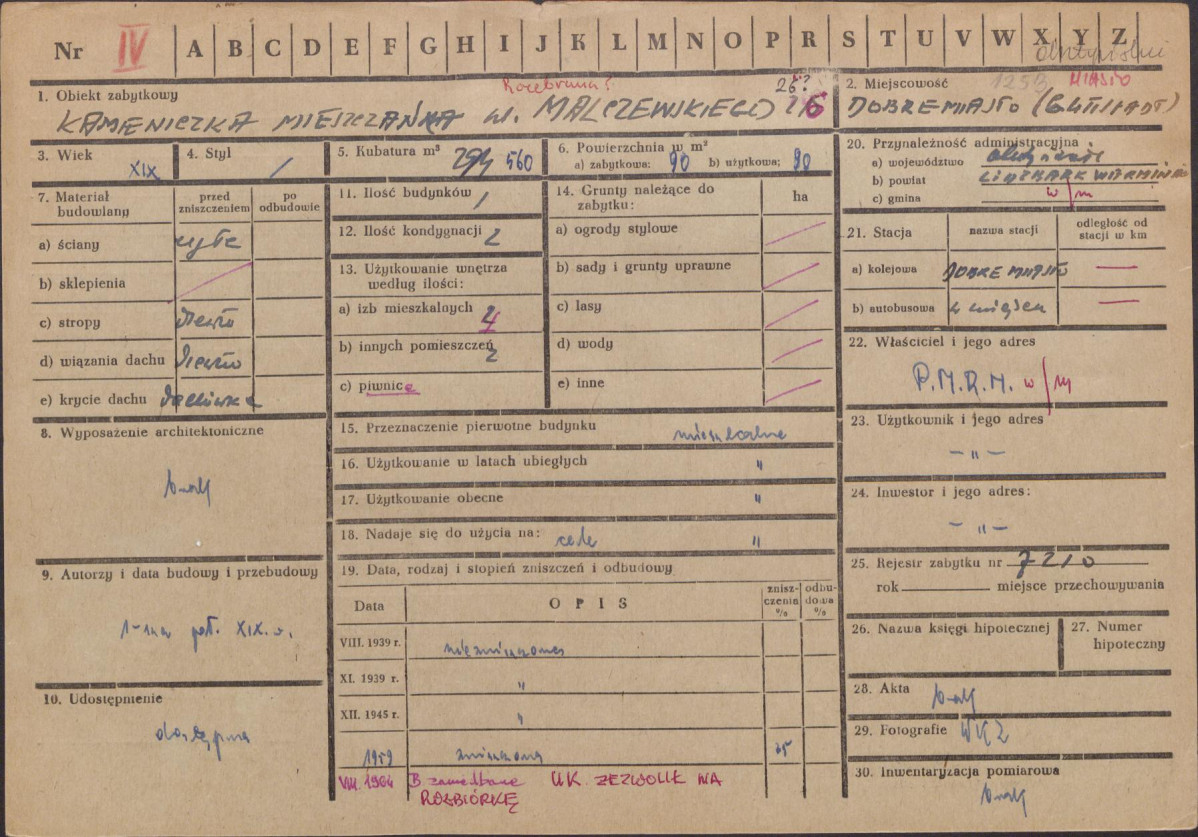 Nr IV A B C D E F G H I J K L M N O P R S T U V W X Y Z
Rozebrana?
26?
1253 MIASTO
1. Obiekt zabytkowy
KAMIENICZKA MIESZCZAŃSKA ul. MALCZEWSKIEGO
2. Miejscowość
DOBRE MIASTO (GUTSTADT)
3. Wiek
XIX
4. Styl
/
5. Kubatura m³
560
6. Powierzchnia w m²
a) zabytkowa: 90 b) użytkowa: 90
7. Materiał budowlany
przed zniszczeniem
po odbudowie
a) ściany cegła
b) sklepienia
c) stropy drewno
d) wiązania dachu drewno
e) krycie dachu dachówka
8. Wyposażenie architektoniczne
brak
9. Autorzy i data budowy i przebudowy
1-sza poł. XIX w.
10. Udostępnienie
dostępna
11. Ilość budynków 1
12. Ilość kondygnacji 2
13. Użytkowanie wnętrza według ilości:
a) izb mieszkalnych 4
b) innych pomieszczeń 2
c) piwnice
14. Grunty należące do zabytku:
ha
a) ogrody stylowe
b) sady i grunty uprawne
c) lasy
d) wody
e) inne
15. Przeznaczenie pierwotne budynku mieszkalne
16. Użytkowanie w latach ubiegłych "
17. Użytkowanie obecne "
18. Nadaje się do użycia na: cele "
19. Data, rodzaj i stopień zniszczeń i odbudowy
Data
OPIS
zniszczenia %
odbudowa %
VIII. 1939 r. niezniszczona
XI. 1939 r. "
XII. 1945 r. "
1959 zniszczona
VIII. 1964 B. zaniedbane UK. ZEZWOLIŁ NA
ROZBIÓRKĘ
20. Przynależność administracyjna
a) województwo olsztyńskie
b) powiat LIDZBARK WARMIŃSKI
c) gmina w/m
21. Stacja
nazwa stacji
odległość od stacji w km
a) kolejowa DOBRE MIASTO
b) autobusowa w miejscu
22. Właściciel i jego adres
P.M.R.N. w/m
23. Użytkownik i jego adres
- " -
24. Inwestor i jego adres:
- " -
25. Rejestr zabytku nr 7210
rok miejsce przechowywania
26. Nazwa księgi hipotecznej
27. Numer hipoteczny
28. Akta brak
29. Fotografie WKZ
30. Inwentaryzacja pomiarowa
brak